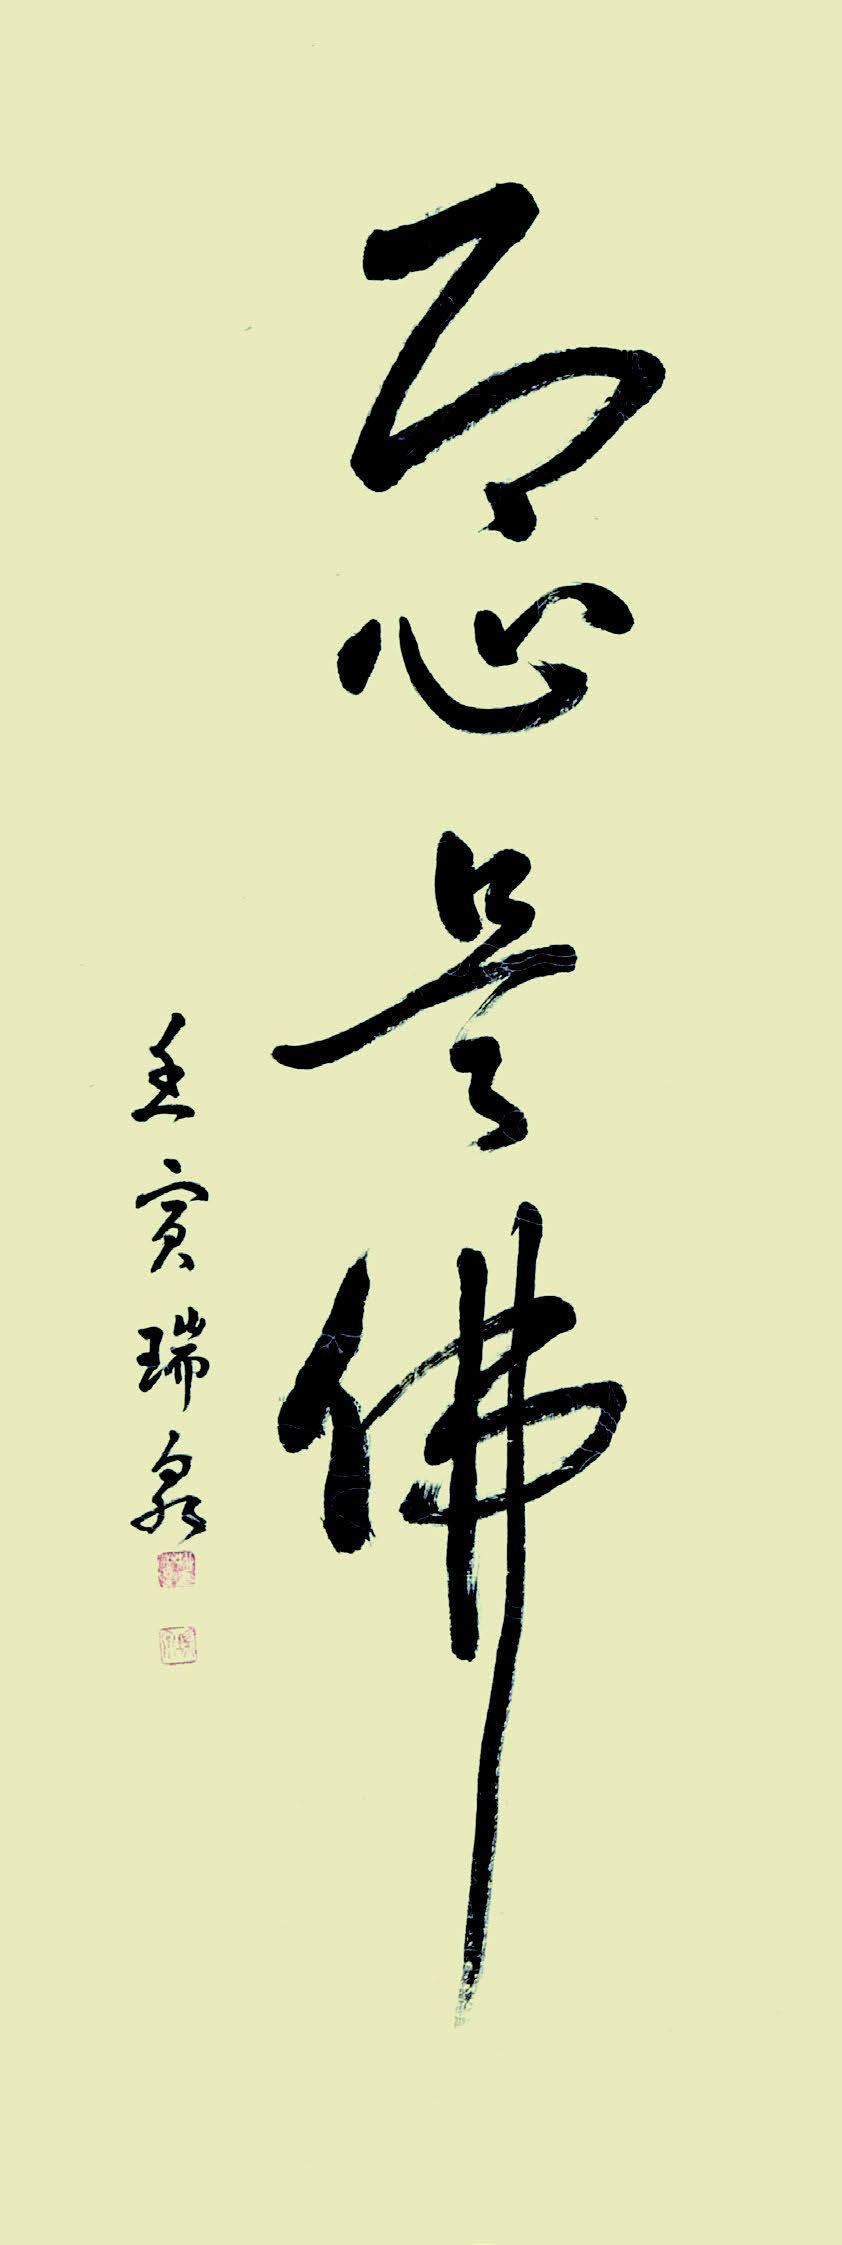 即心是佛
壬寅瑞泉